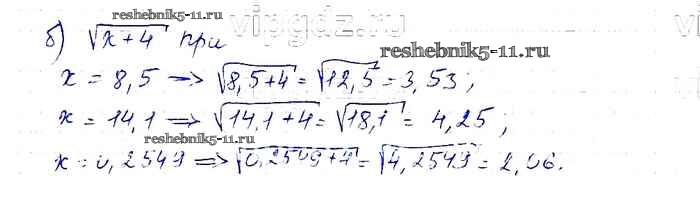 reshebnik5-11.ru
vipgdz.ru
б) √x+4 при
reshebnik5-11.ru
x = 8,5 → √8,5+4 = √12,5 = 3,53;
x = 14,1 → √14,1+4 = √18,1 = 4,25;
reshebnik5-11.ru
x = 0,2549 ⇒ √0,2549+4 = √4,2549 = 2,06.